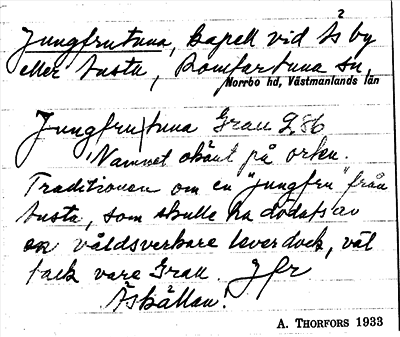 Jungfrutuna, kapell vid Ås by
eller Tusta, Romfartuna sn,
Norrbo hd, Västmanlands län
Jungfru|tuna Grau 286
Namnet okänt på orten.
Traditionen om en "jungfru" från
Tusta, som skulle ha dödats av
en våldsverkare lever dock, väl
tack vare Grau. Jfr
Åskällan.
A. THORFORS 1933